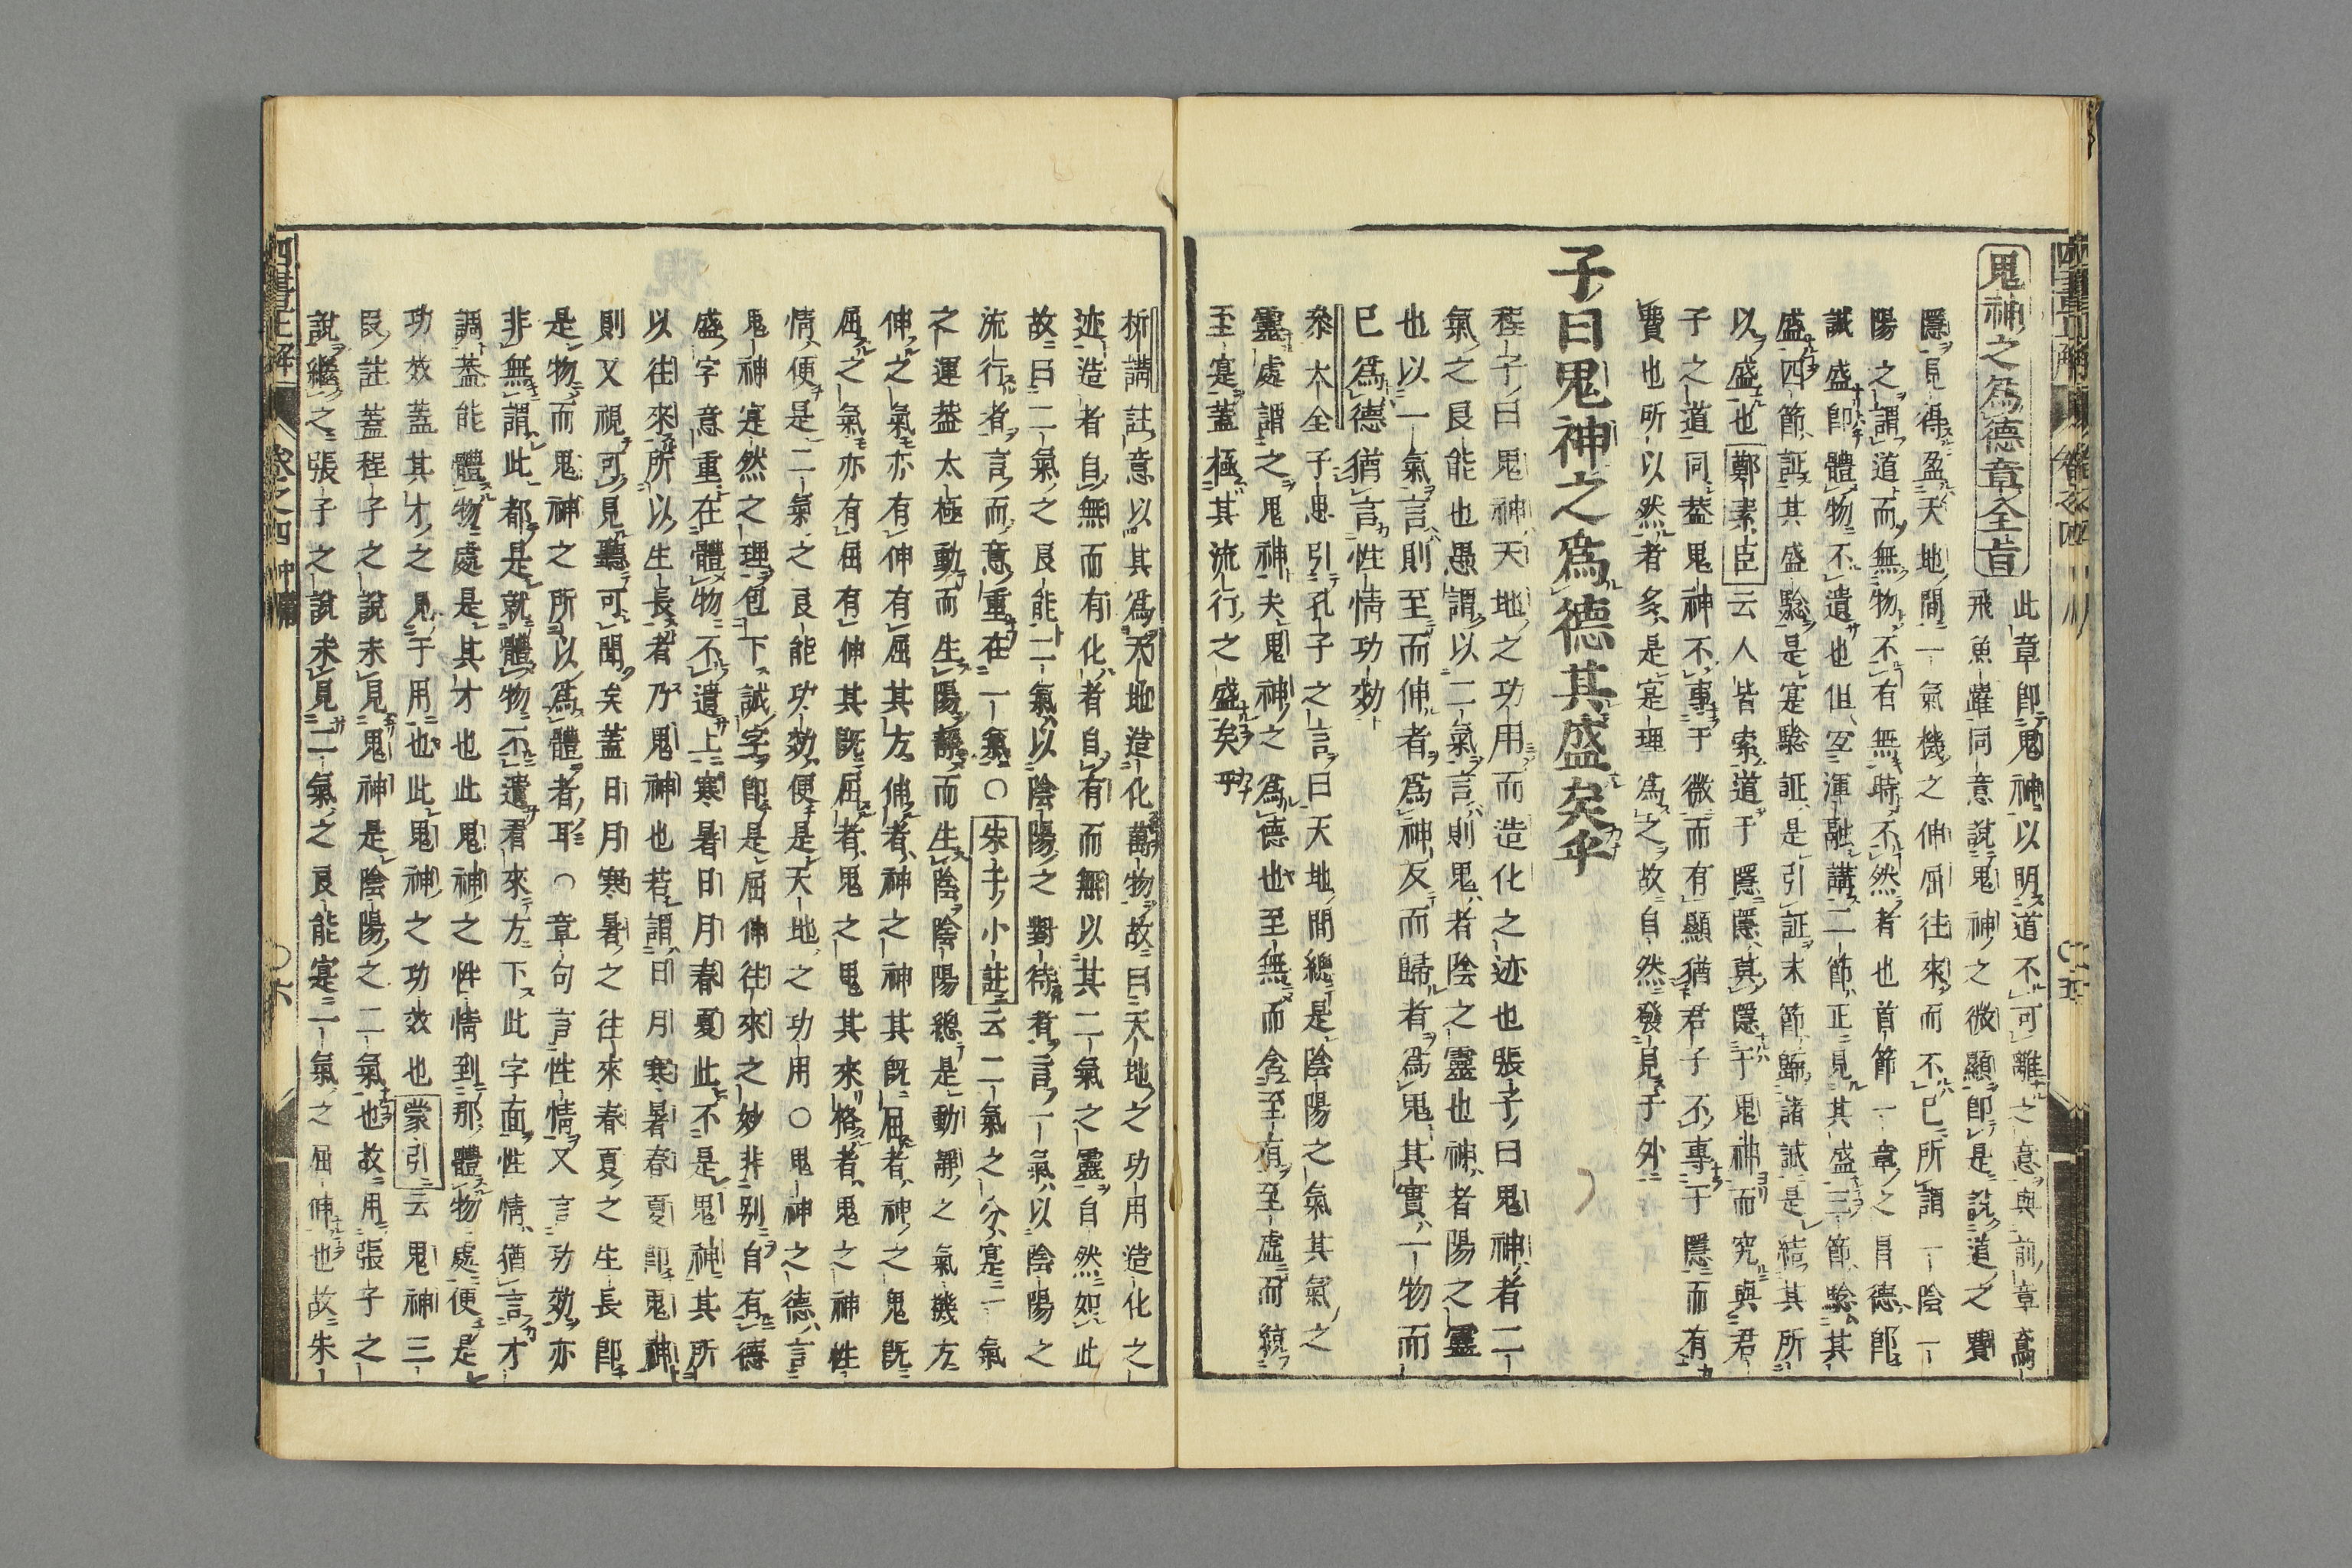 鬼神之爲德章全旨
此章即鬼神以明道不可離之意與前章鳶
飛魚躍同意說鬼神之微顯即是說道之費
隱見得盈天地間一氣機之伸屈往來而不已所謂一陰一
陽之謂道而無物不有無時不然者也首節一章之旨德即
誠盛即體物不遺也但宜渾融講二節正見其盛三節驗其
盛四節証其盛驗是寔驗証是引証末節歸諸誠是結其所
以盛也鄭素臣云人皆索道于隱隱莫隱于鬼神而究與君
子之道同葢鬼神不專于微而有顯猶君子不專于隱而有
費也所以然者多是寔理爲之故自然發見于外
子曰鬼神之爲德其盛矣乎
程子曰鬼神天地之功用而造化之迹也張子曰鬼神者二
氣之良能也愚謂以二氣言則鬼者陰之靈也神者陽之靈
也以一氣言則至而伸者爲神反而歸者爲鬼其實一物而
已爲德猶言性情功効
叅太全子思引孔子之言曰天地間總是陰陽之氣其氣之
靈處謂之鬼神夫鬼神之爲德也至無而含至有至虛而統
至寔蓋極其流行之盛矣乎
析講註意以其爲天地造化萬物故曰天地之功用造化之
迹造者自無而有化者自有而無以其二氣之靈自然如此
故曰二氣之良能二氣以陰陽之對待者言一氣以陰陽之
流行者言而意重在一氣○朱子小註云二氣之分寔一氣
之運葢太極動而生陽靜而生陰陰陽總是動靜之氣機方
伸之氣亦有伸有屈其方伸者神之神其既屈者神之鬼既
屈之氣亦有屈有伸其既屈者鬼之鬼其來格者鬼之神性
情便是二氣之良能功効便是天地之功用○鬼神之德言
鬼神寔然之理包下誠字即是屈伸往來之妙非别自有德
盛字意重在體物不遺上寒暑日月春夏此不是鬼神其所
以往來所以生長者乃鬼神也若謂日月寒暑春夏即鬼神
則又視可見聽可聞矣蓋日月寒暑之往來春夏之生長即
是物而鬼神之所以爲體者耳○章句言性情又言功効亦
非無謂此都是就體物不遺看來方下此字面性情猶言才
調葢能體物處是其才也此鬼神之性情到那體物處便是
功效蓋其才之見于用也此鬼神之功效也蒙引云鬼神三
段註蓋程子之說未見鬼神是陰陽之二氣也故用張子之
說繼之張子之說未見二氣之良能寔二氣之屈伸也故朱
四書正解
卷之四
中庸